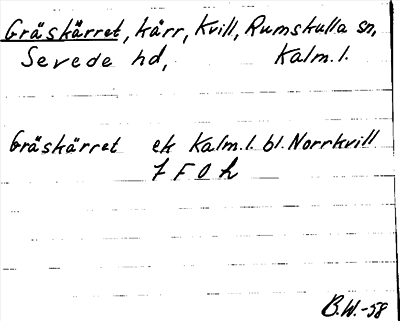 Gräskärret, kärr, Kvill, Rumskulla sn,
Sevede hd, Kalm. l.
Gräskärret ek Kalm. l. bl. Norrkvill
7 F 0 h
B.W.-58